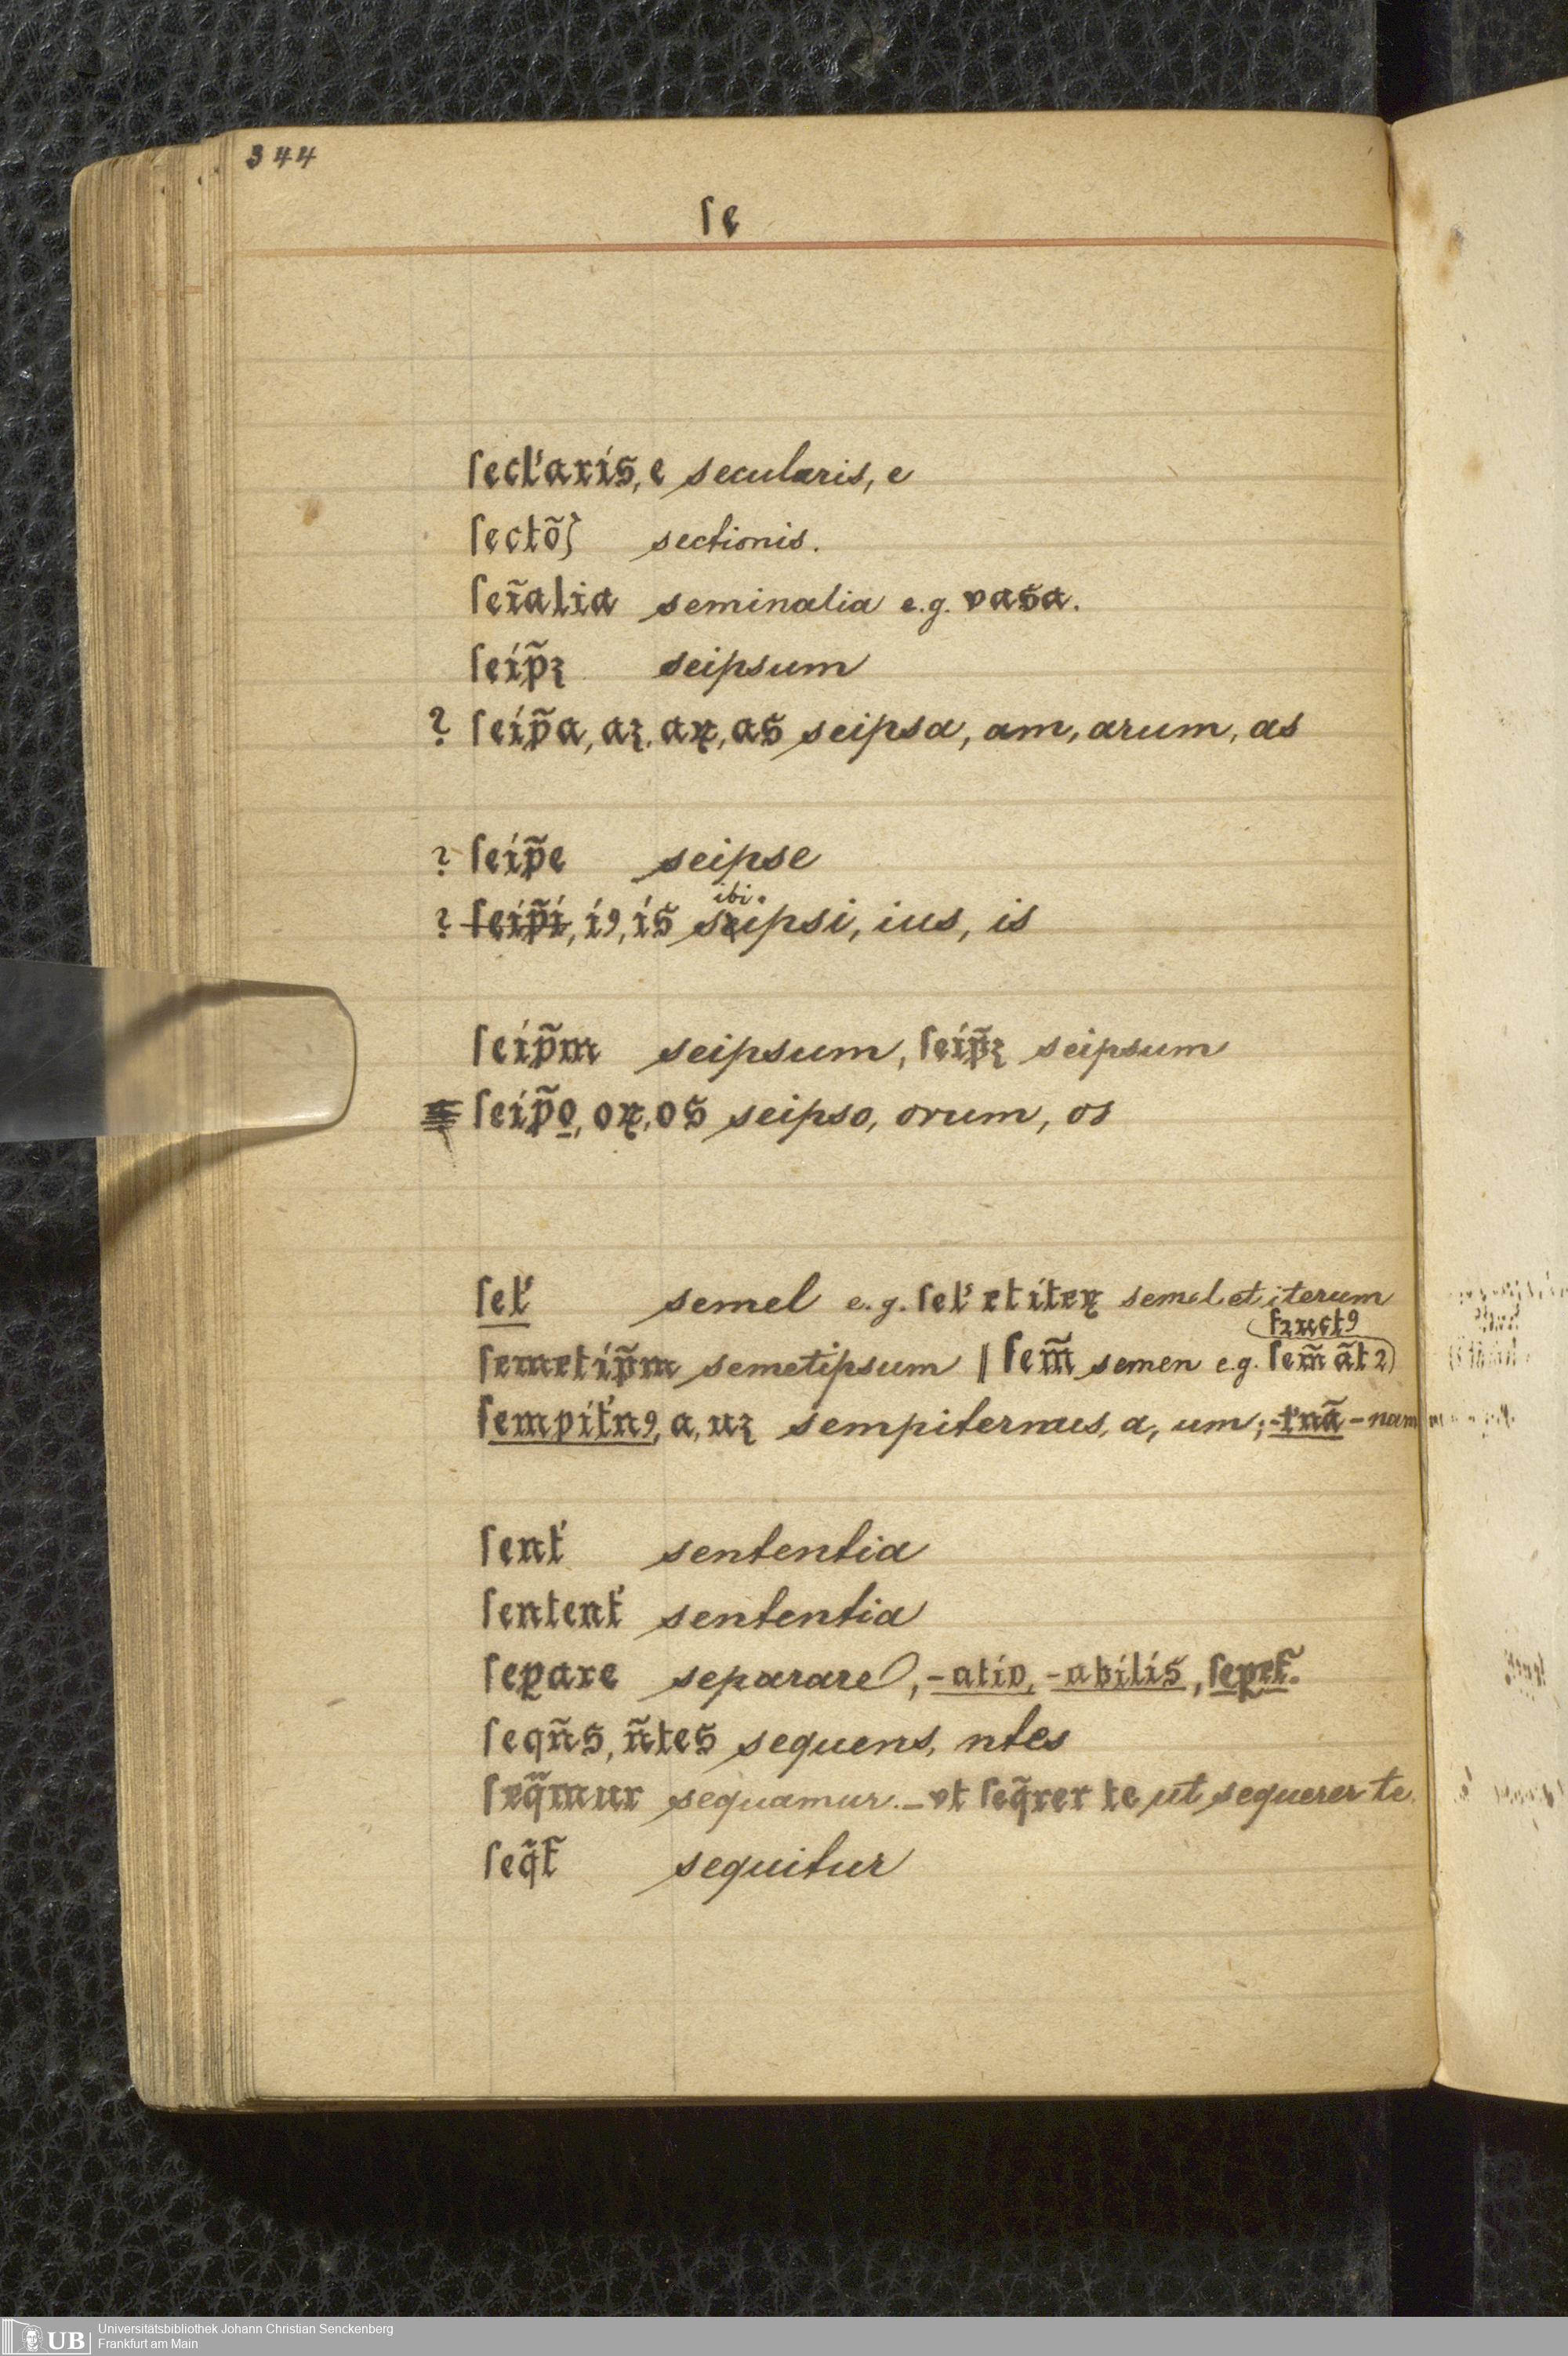 344
ſe
ſecl'aris, e secularis, e
ſectõʃ sectionis.
ſeĩalia seminalia e.g. vasa.
ſeip̃ꝫ seipsum
? ſeip̃a, aꝫ, aꝝ, as seipsa, am, arum, as
? ſeip̃e seipse
ibi.
? ſeip̃i, iꝯ, is seipsi, ius, is
ſeip̃m seipsum, ſeip̃ꝫ seipsum
ſeip̃o, oꝝ, os seipso, orum, os
ſel' semel e.g. ſel' et iteꝝ semel et iterum
fructꝯ
ſemetip̃m semetipsum || ſem̃ semen e.g. ſem̃ ãtꝛ
ſempit'nꝯ, a, uꝫ sempiternus, a, um; -t'nã -nam
ſent' sententia
ſentent' sententia
ſeꝑare separare, -atio, -abilis, ſeꝑet̃.
ſeqñs, ñtes sequens, ntes
ſeq̃mur sequamur. - vt ſeq̃rer te ut sequerer te.
ſeq̃t̃ sequitur
UB Universitätsbibliothek Johann Christian Senckenberg
Frankfurt am Main